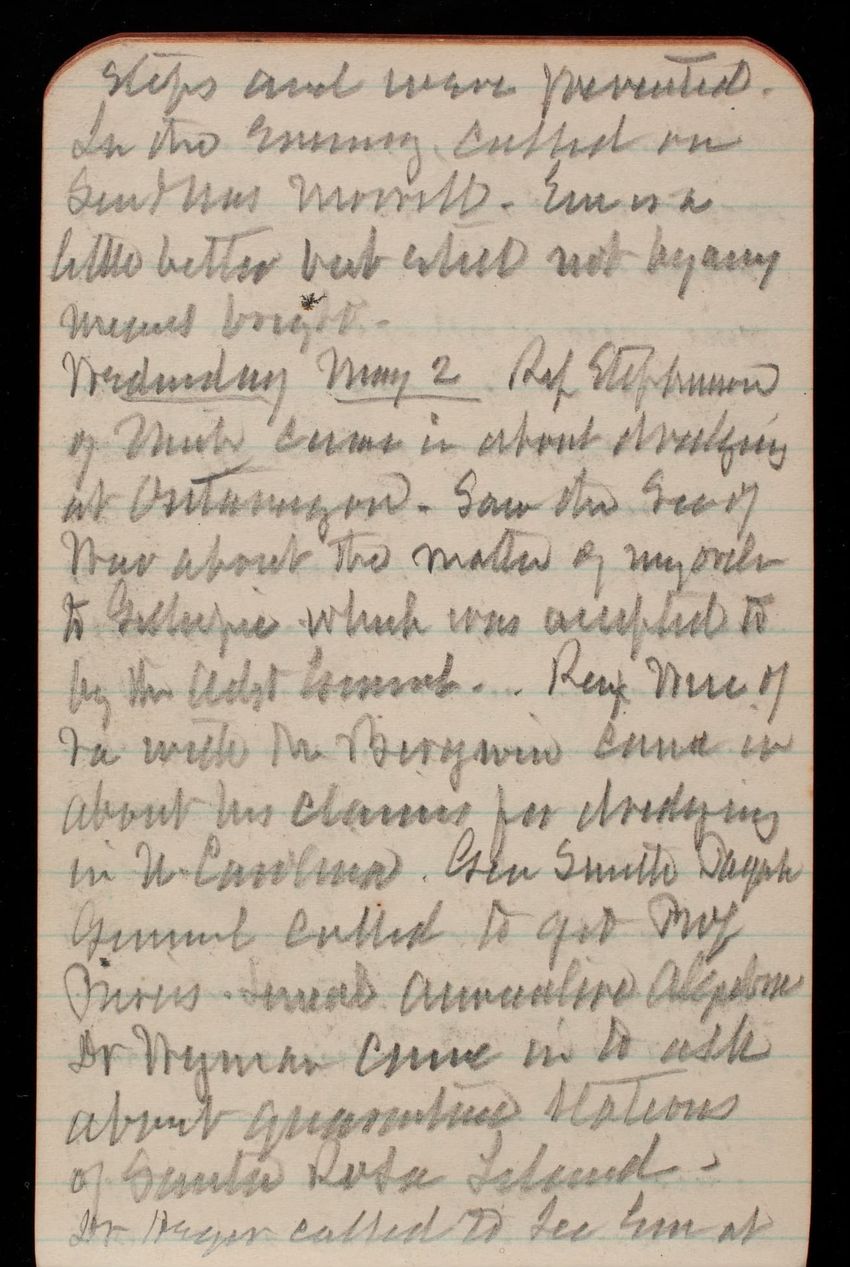 Steps and were prevented.
In the Evening called on
Sen & Mrs Morrill. Em is a
little better but still not by any
means bright.
Wednesday May 2 Rep Stephenson
of Mich came in about dredging
at Ontonagon. Saw the Sec of
War about the matter of my order
to Gillespie which was accepted to
by the Adjt General. Rep Wise of
Va with Mr Bergwin came in
about his claims for dredging
in N. Carolina. Gen Smith Paym
General called to get Prof
Peirces Lineal Associative Algebra
Dr Wyman came in to ask
about quarantine stations
of Santa Rosa Island.
Dr Heger called to see Em at